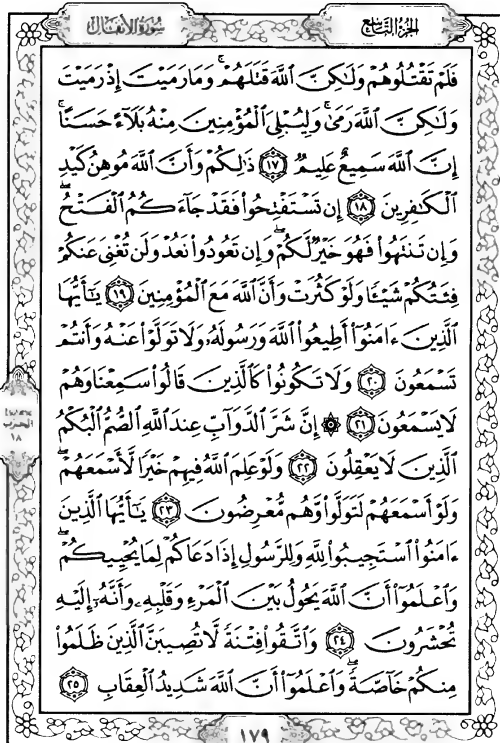 سورة الأنفال
الجزء التاسع
فَلَمْ تَقْتُلُوهُمْ وَلَٰكِنَّ ٱللَّهَ قَتَلَهُمْ ۚ وَمَا رَمَيْتَ إِذْ رَمَيْتَ
وَلَٰكِنَّ ٱللَّهَ رَمَىٰ ۚ وَلِيُبْلِيَ ٱلْمُؤْمِنِينَ مِنْهُ بَلَآءً حَسَنًا ۚ
إِنَّ ٱللَّهَ سَمِيعٌ عَلِيمٌ ١٧ ذَٰلِكُمْ وَأَنَّ ٱللَّهَ مُوهِنُ كَيْدِ
ٱلْكَٰفِرِينَ ١٨ إِن تَسْتَفْتِحُوا۟ فَقَدْ جَآءَكُمُ ٱلْفَتْحُ ۖ
وَإِن تَنتَهُوا۟ فَهُوَ خَيْرٌ لَّكُمْ ۖ وَإِن تَعُودُوا۟ نَعُدْ وَلَن تُغْنِىَ عَنكُمْ
فِئَتُكُمْ شَيْـًٔا وَلَوْ كَثُرَتْ وَأَنَّ ٱللَّهَ مَعَ ٱلْمُؤْمِنِينَ ١٩ يَٰٓأَيُّهَا
ٱلَّذِينَ ءَامَنُوٓا۟ أَطِيعُوا۟ ٱللَّهَ وَرَسُولَهُۥ وَلَا تَوَلَّوْا۟ عَنْهُ وَأَنتُمْ
تَسْمَعُونَ ٢٠ وَلَا تَكُونُوا۟ كَٱلَّذِينَ قَالُوا۟ سَمِعْنَا وَهُمْ
لَا يَسْمَعُونَ ٢١ ۞ إِنَّ شَرَّ ٱلدَّوَآبِّ عِندَ ٱللَّهِ ٱلصُّمُّ ٱلْبُكْمُ
ٱلَّذِينَ لَا يَعْقِلُونَ ٢٢ وَلَوْ عَلِمَ ٱللَّهُ فِيهِمْ خَيْرًا لَّأَسْمَعَهُمْ ۖ
وَلَوْ أَسْمَعَهُمْ لَتَوَلَّوا۟ وَّهُم مُّعْرِضُونَ ٢٣ يَٰٓأَيُّهَا ٱلَّذِينَ
ءَامَنُوا۟ ٱسْتَجِيبُوا۟ لِلَّهِ وَلِلرَّسُولِ إِذَا دَعَاكُمْ لِمَا يُحْيِيكُمْ ۖ
وَٱعْلَمُوٓا۟ أَنَّ ٱللَّهَ يَحُولُ بَيْنَ ٱلْمَرْءِ وَقَلْبِهِۦ وَأَنَّهُۥٓ إِلَيْهِ
تُحْشَرُونَ ٢٤ وَٱتَّقُوا۟ فِتْنَةً لَّا تُصِيبَنَّ ٱلَّذِينَ ظَلَمُوا۟
مِنكُمْ خَآصَّةً ۖ وَٱعْلَمُوٓا۟ أَنَّ ٱللَّهَ شَدِيدُ ٱلْعِقَابِ ٢٥
الحزب
١٨
١٧٩